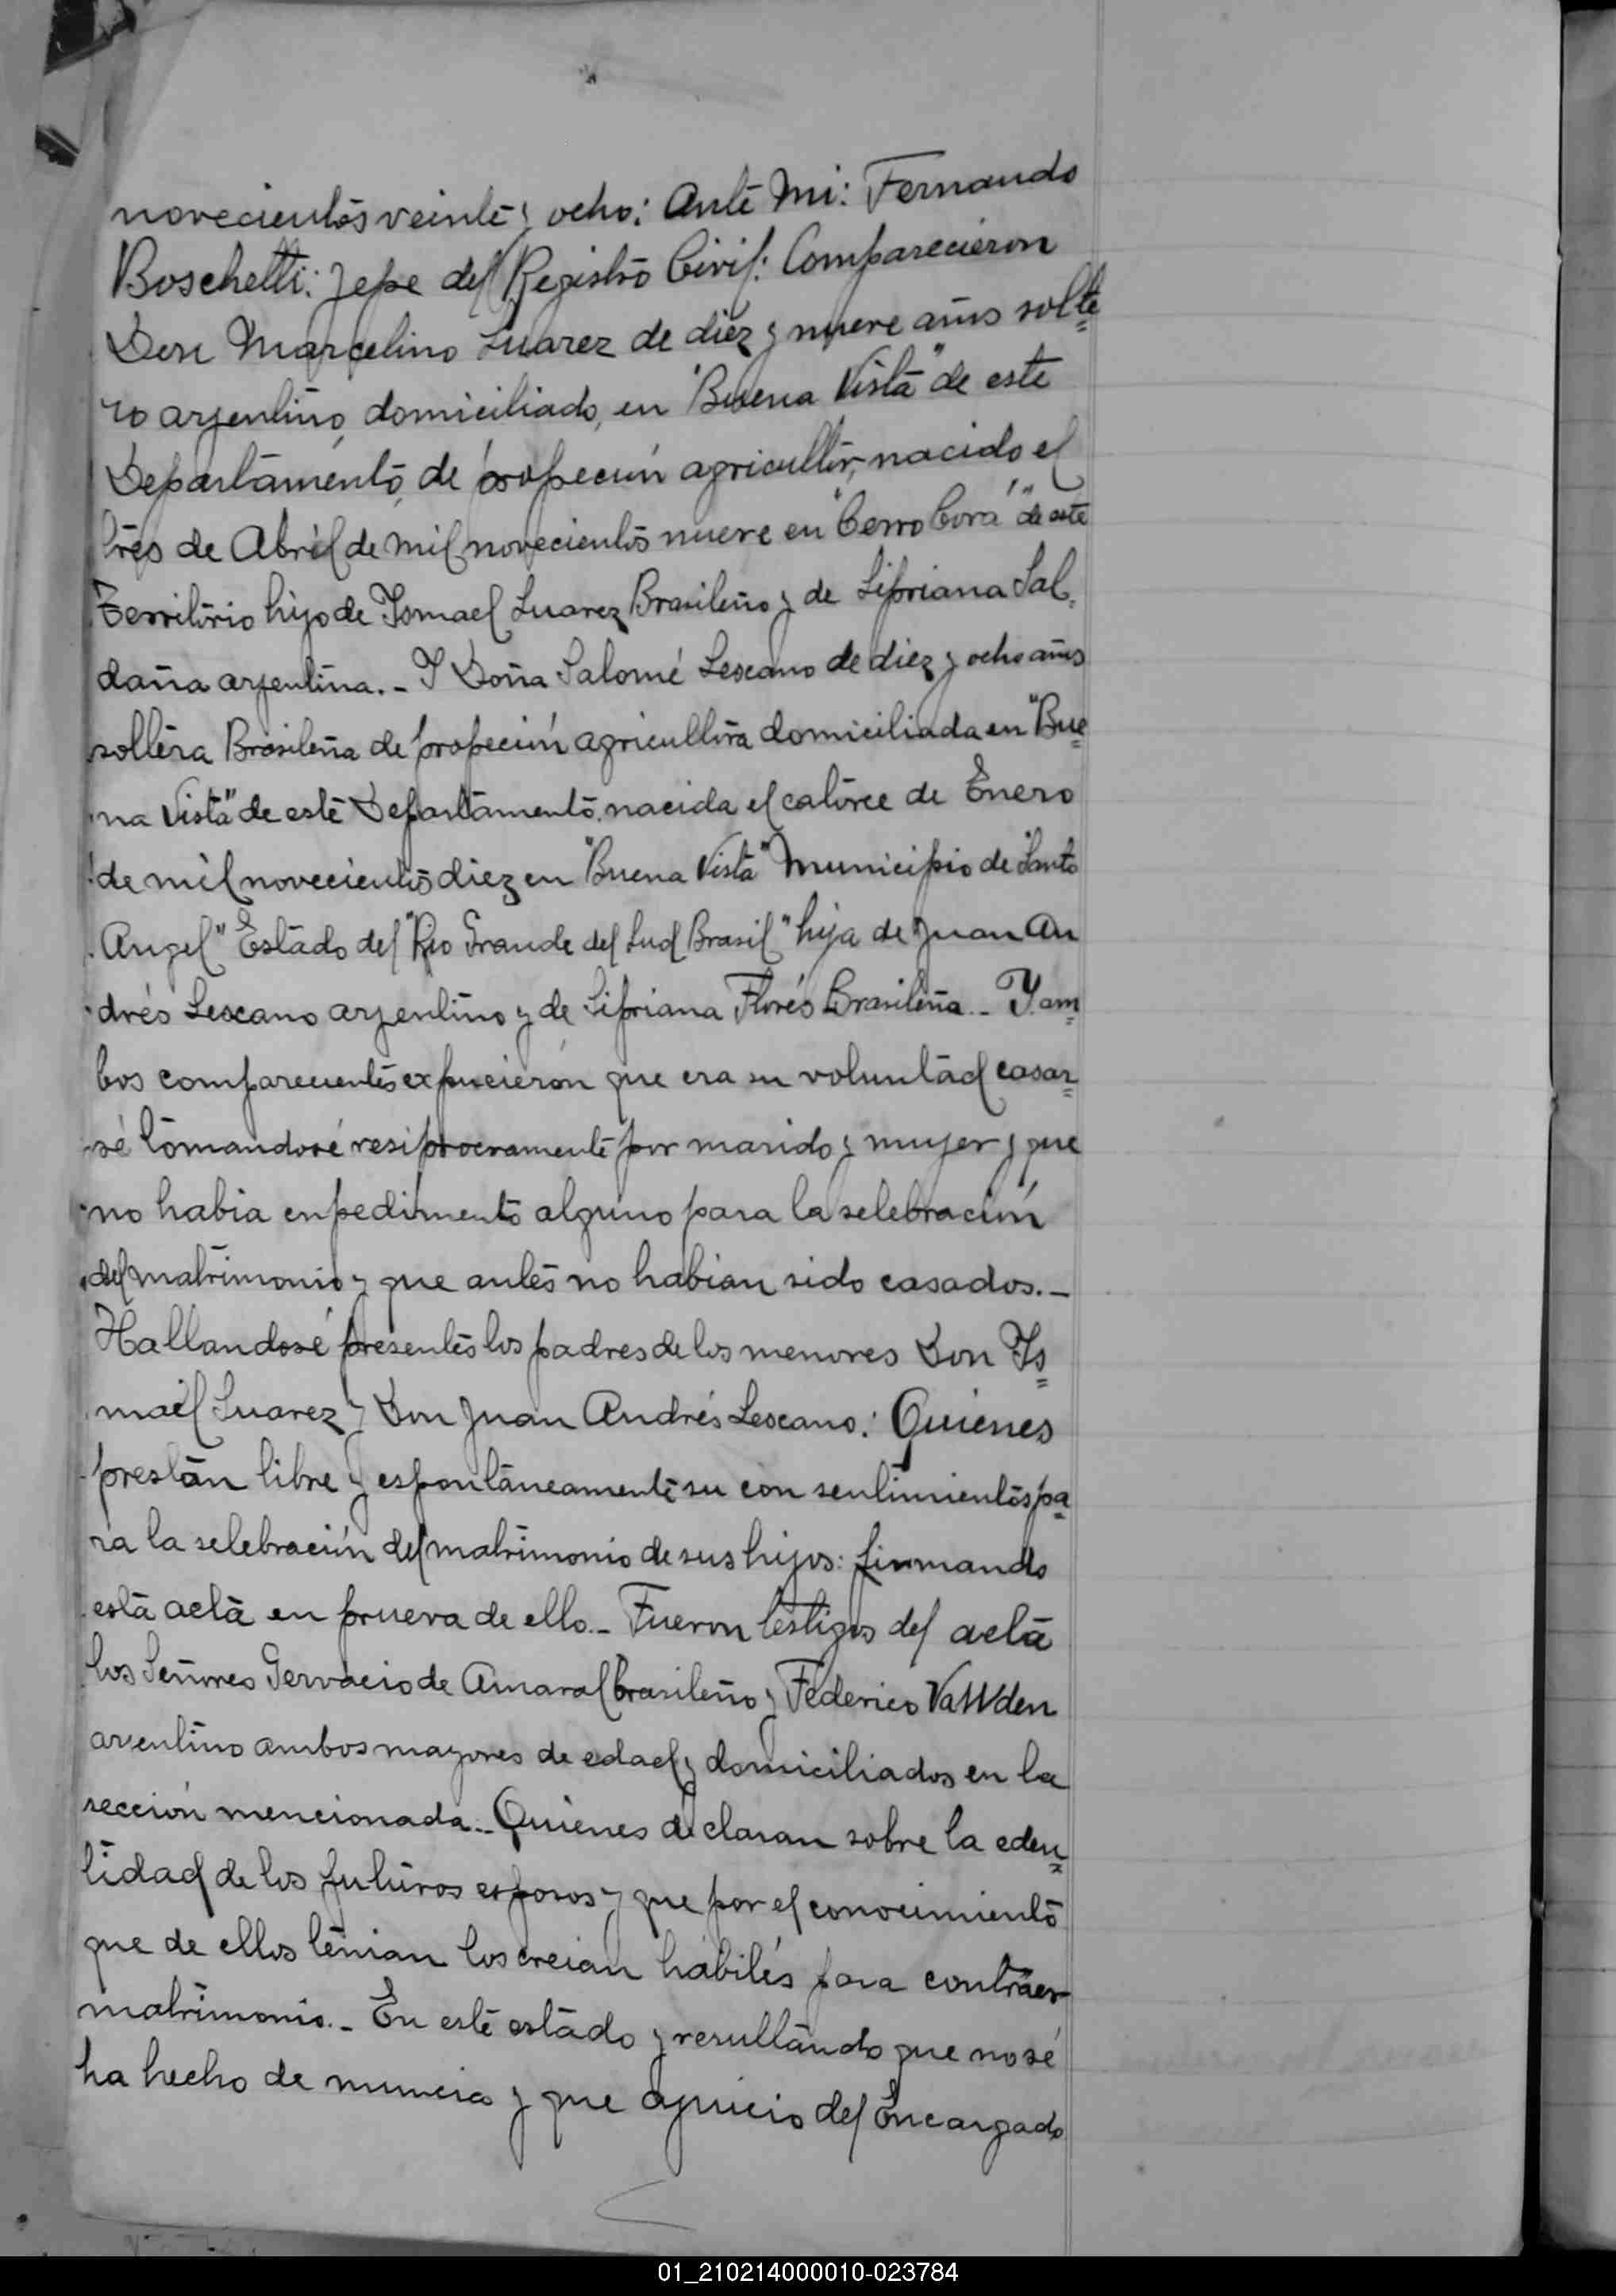 novecientos veinte y ocho: Ante Mi: Fernando
Boschetti: Jefe del Registro Civil: Comparecieron
Don Marcelino Suarez de diez y nueve años solte=
ro arjentino, domiciliado, en "Buena Vista" de este
Departamento, de profeción agricultor, nacido el
tres de Abril de mil novecientos nueve en "Cerro Corá" de este
Territorio hijo de Ismael Suarez Brasileño y de Sipriana Sal=
daña arjentina.- I Doña Salomé Lescano de diez y ocho años
soltera Brasileña de profeción agricultora domiciliada en "Bue=
na Vista" de este Departamento, nacida el catorce de Enero
de mil novecientos diez en "Buena Vista" Municipio de "Santo
Angel" Estado del "Rio Grande del Sud Brasil" hija de Juan An
drés Lescano arjentino y de Sipriana Florés Brasileña.- Y am=
bos comparecientes expucierón que era su voluntad casar=
sé tomandosé resiprocramente por marido y mujer y que
no habia enpedimento alguno para la selebración
del matrimonio y que antes no habian sido casados.-
Hallandosé presentes los padres de los menores Don Is=
mael Suarez y Don Juan Andrés Lescano: Quienes
prestan libre y espontaneamente su con sentimientos pa=
ra la selebración del matrimonio de sus hijos: firmando
esta acta en prueva de ello.- Fueron testigos del acta
los Señores Gervacio de Amaral brasileño y Federico
arentino ambos mayores de edad y domiciliados en la
sección mencionada.- Quienes declaran sobre la eden=
tidad de los futuros esposos y que por el conocimiento
que de ellos tenian los creian hábiles para contraer
matrimonio.- En este estado y resultando que no sé
ha hecho de nuncia y que ajuicio del Encargado
01_210214000010-023784